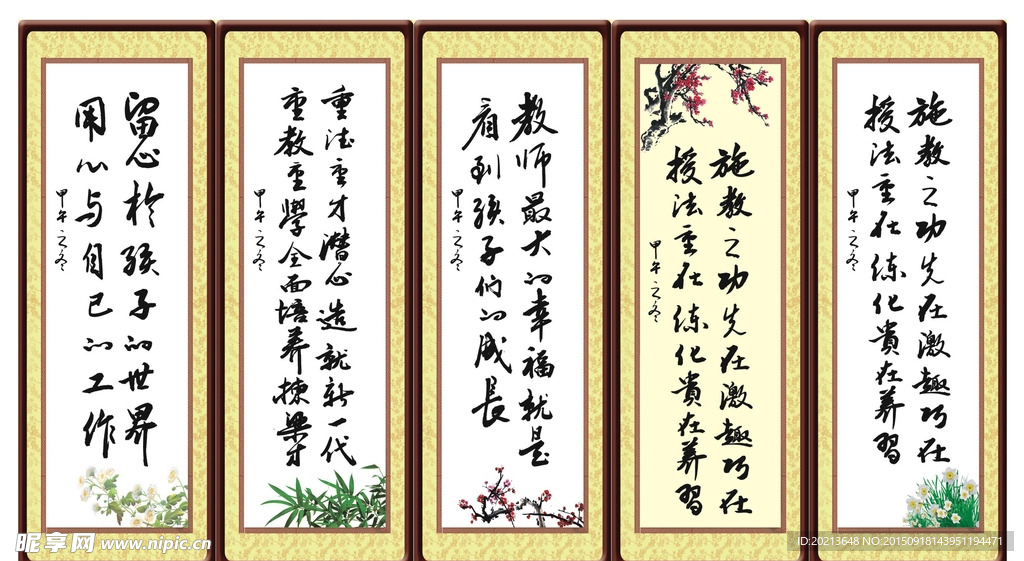 留心於孩子的世界
用心与自己的工作
甲午之冬
重德重才潜心造就新一代
重教重學全面培养棟梁才
甲午之冬
教师最大的幸福就是
看到孩子们的成長
甲午之冬
施教之功先在激趣巧在
授法重在练化貴在养習
甲午之冬
施教之功先在激趣巧在
授法重在练化貴在养習
甲午之冬
昵享网 www.nipic.cn
ID:20213648 NO:20150918143951194471